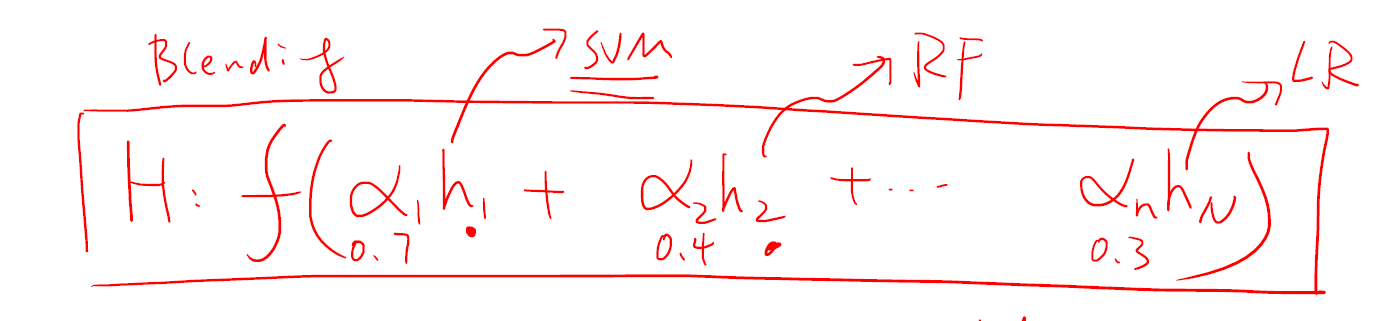 Blending → SVM → RF → LR
H: f(α₁h₁ + α₂h₂ + ... αₙh_N)
0.7 0.4 0.3